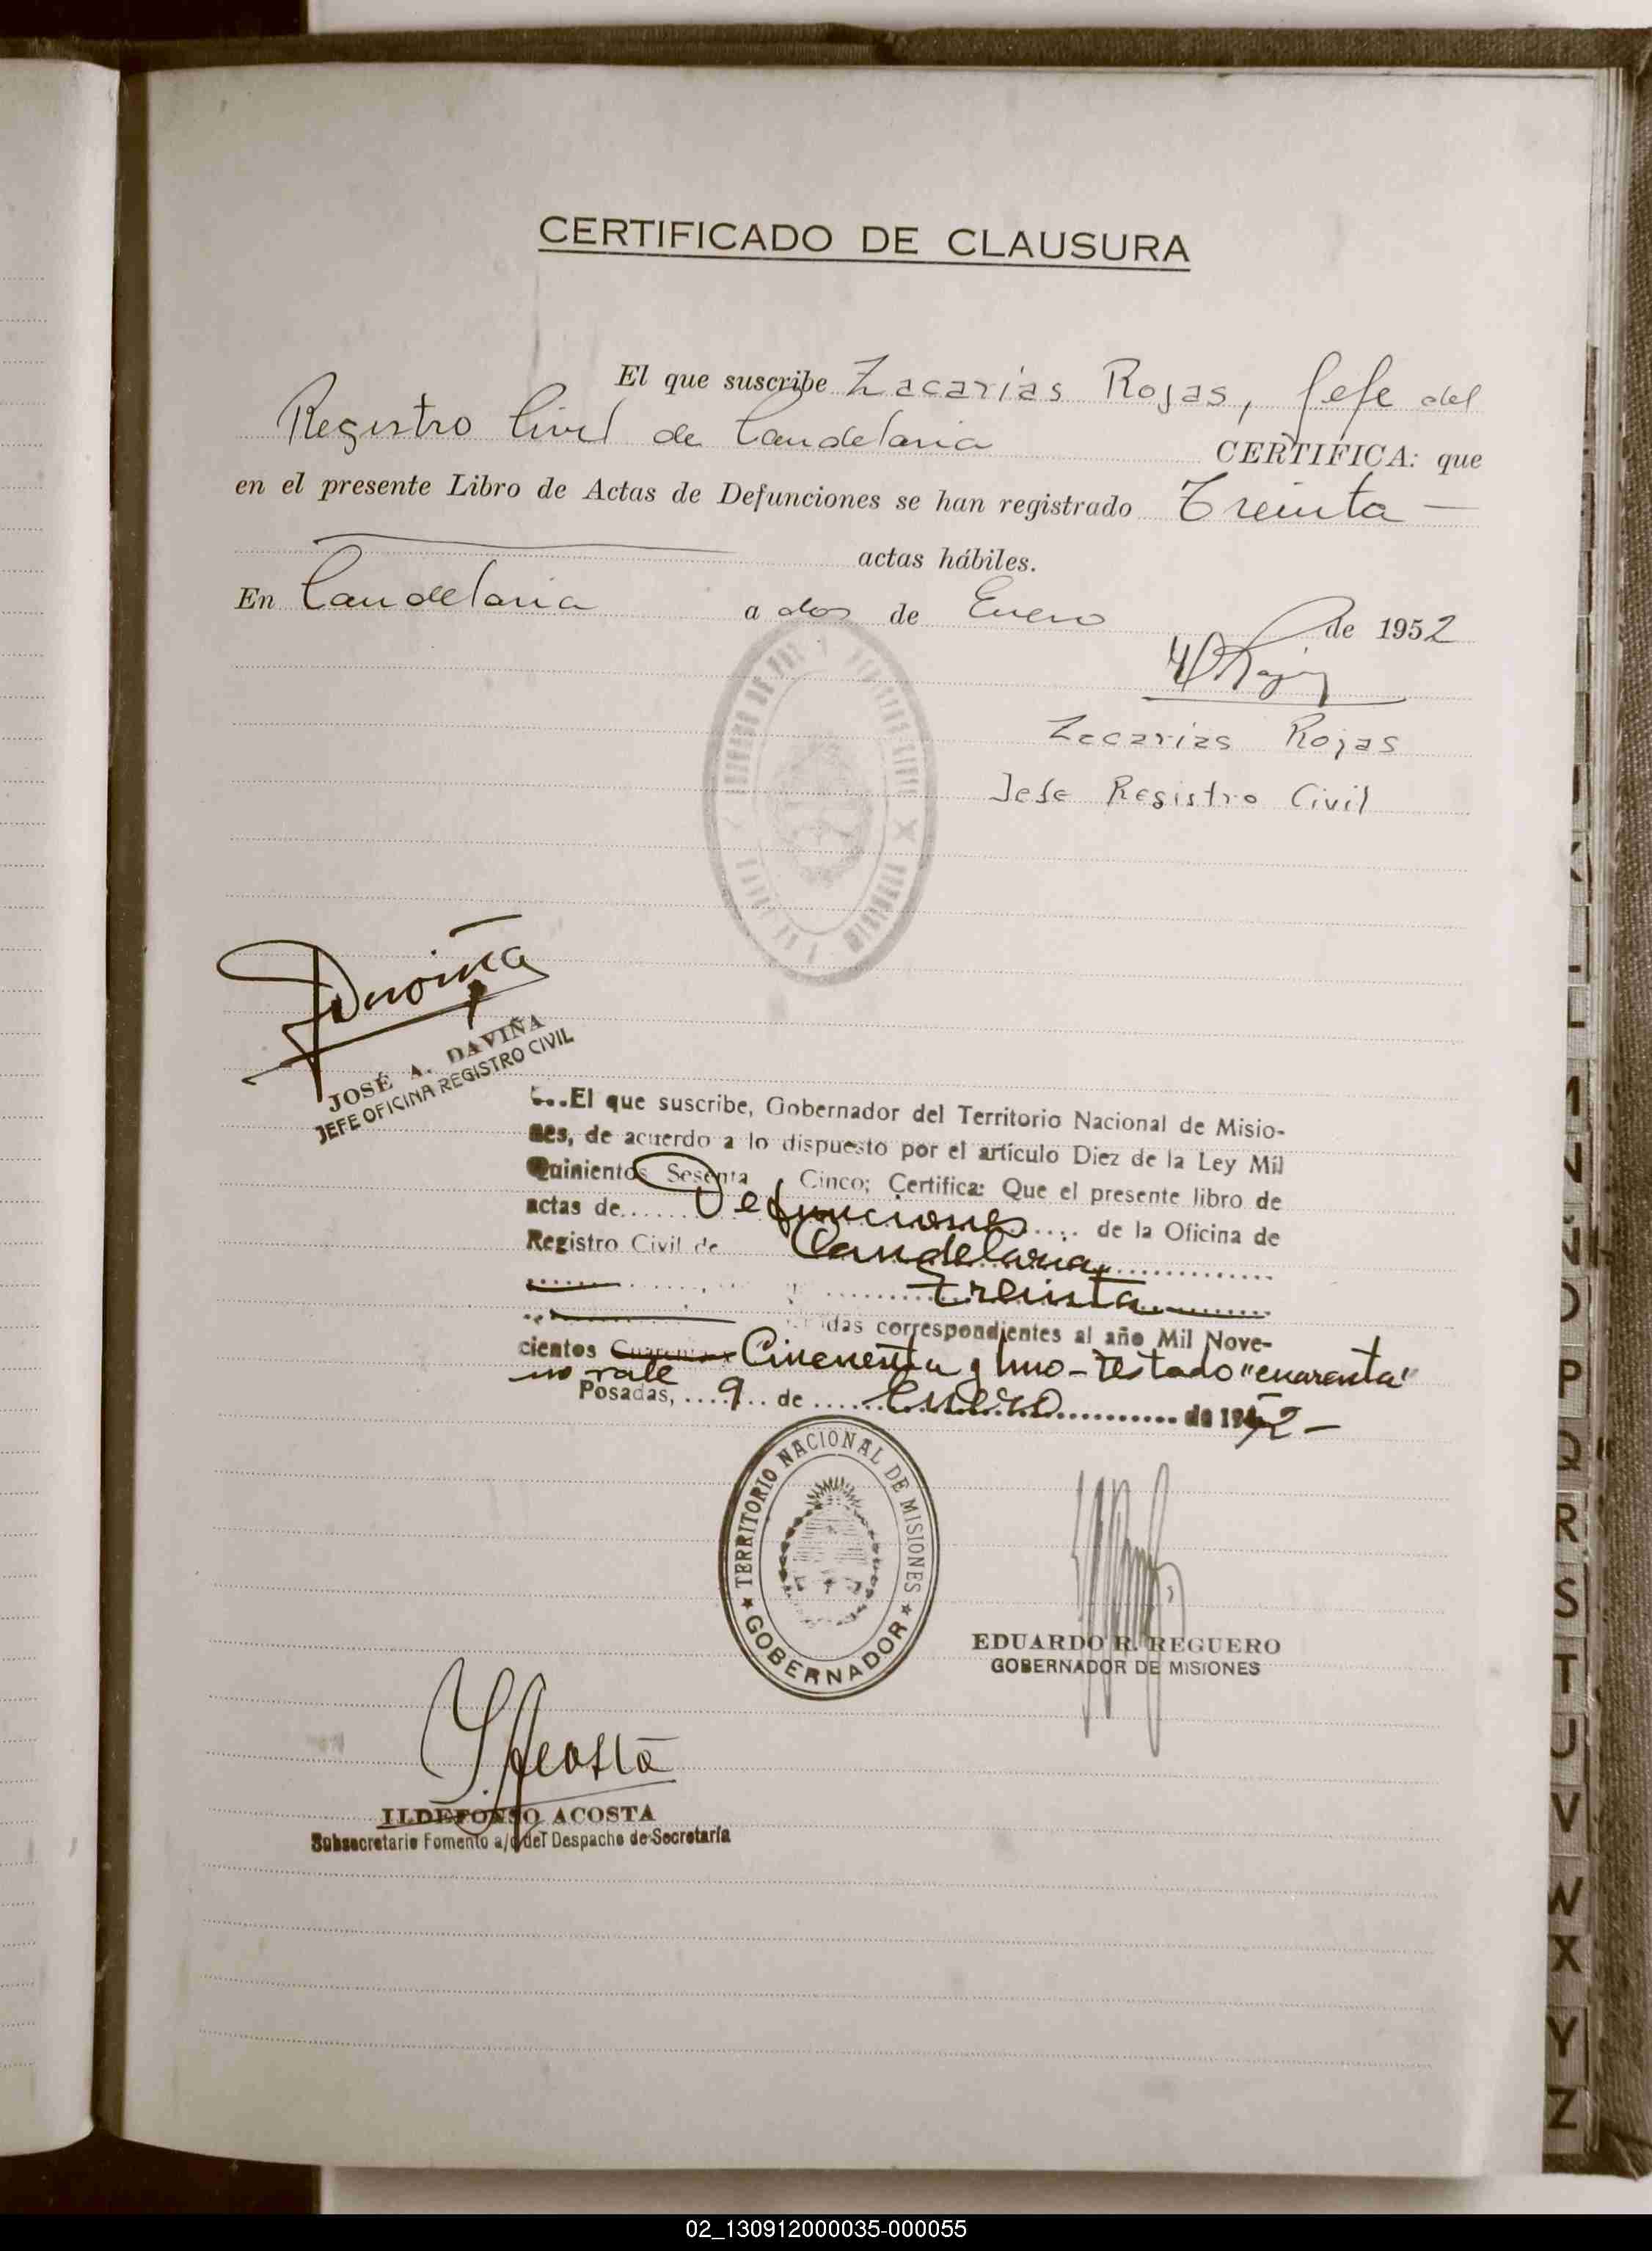 CERTIFICADO DE CLAUSURA
El que suscribe Zacarias Rojas, Jefe del
Registro Civil de Candelaria CERTIFICA: que
en el presente Libro de Actas de Defunciones se han registrado Treinta —
actas hábiles.
En Candelaria a dos de Enero de 1952
Zacarias Rojas
Jefe Registro Civil
JOSÉ A. DAVIÑA
JEFE OFICINA REGISTRO CIVIL
...El que suscribe, Gobernador del Territorio Nacional de Misio-
nes, de acuerdo a lo dispuesto por el artículo Diez de la Ley Mil
Quinientos Sesenta Cinco; Certifica: Que el presente libro de
actas de...... Defunciones .... de la Oficina de
Registro Civil de Candelaria,
treinta
correspondientes al año Mil Nove-
cientos Cuarenta Cincuenta y Uno - Testado "cuarenta"
no vale
Posadas, ....9.. de ..... Enero ........... de 1952 -
TERRITORIO NACIONAL DE MISIONES
GOBERNADOR
EDUARDO R. REGUERO
GOBERNADOR DE MISIONES
I. Acosta
ILDEFONSO ACOSTA
Subsecretario Fomento a/c del Despacho de Secretaría
L
M
N
Ñ
O
P
Q
R
S
T
U
V
W
X
Y
Z
02_130912000035-000055